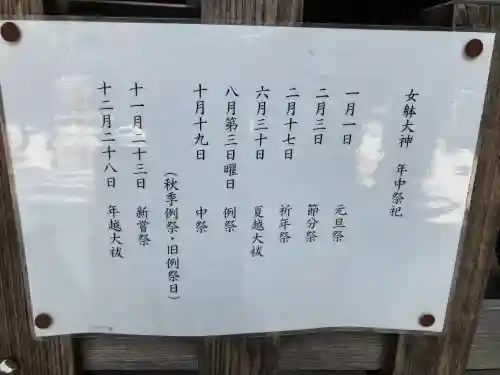 女躰大神 年中祭祀
一月一日 元旦祭
二月三日 節分祭
二月十七日 祈年祭
六月三十日 夏越大祓
八月第三日曜日 例祭
十月十九日 中祭
(秋季例祭・旧例祭日)
十一月二十三日 新嘗祭
十二月二十八日 年越大祓